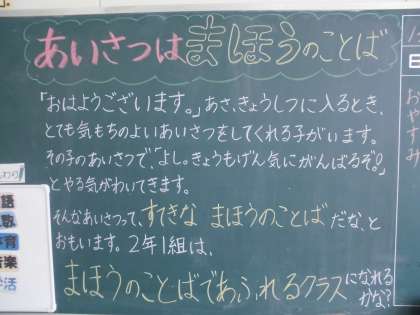 あいさつは まほうのことば
「おはようございます。」あさ、きょうしつに入るとき、
とても気もちのよいあいさつをしてくれる子がいます。
その子のあいさつで、「よし。きょうもげん気にがんばるぞ。」
とやる気がわいてきます。
そんなあいさつって、すてきな まほうのことば だな、と
おもいます。2年1組は、
まほうのことばであふれるクラスになれる
かな?
語
数
育
音楽
学活
おやすみ